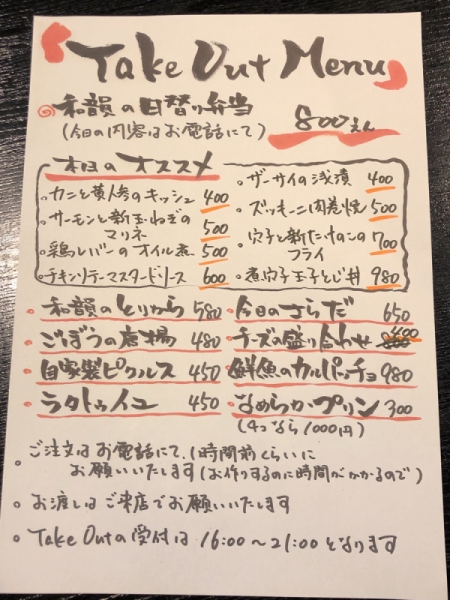 Take Out Menu
和韻の日替り弁当 800えん
(今日の内容はお電話にて)
本日のオススメ
・カニと黄人参のキッシュ 400
・サーモンと新玉ねぎの
マリネ 500
・鶏レバーのオイル煮 500
・チキンソテーマスタードソース 600
・ザーサイの浅漬 400
・ズッキーニ肉巻焼 500
・穴子と新たけのこの
フライ 700
・煮穴子玉子とじ丼 980
・和韻のとりから 580
・ごぼうの唐揚 480
・自家製ピクルス 450
・ラタトゥイユ 450
・今日のさらだ 650
・チーズの盛り合わせ 400
・鮮魚のカルパッチョ 980
・なめらかプリン 300
(4つなら1000円)
。ご注文はお電話にて、1時間前くらいに
お願いいたします(お作りするのに時間がかかるので)
。お渡しはご来店でお願いいたします
。Take Outの受付は 16:00〜21:00となります